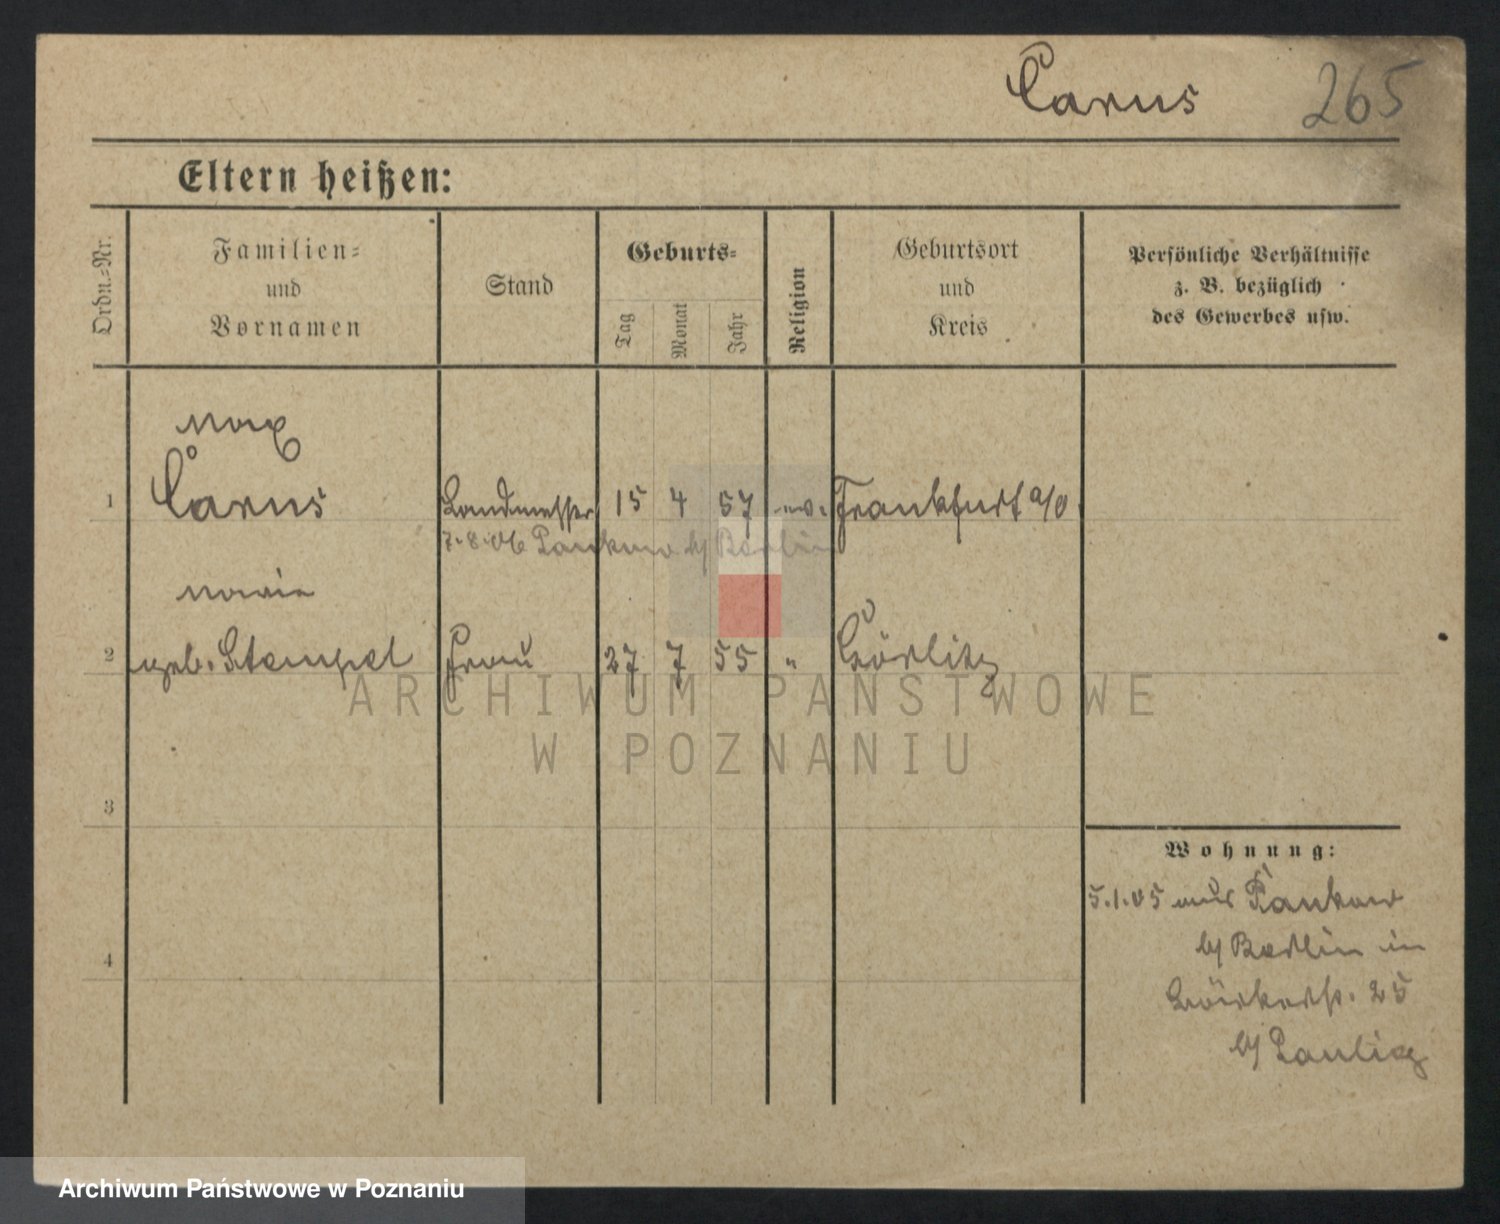 Carus 265
Eltern heißen:
Ordn.-Nr.
Familien-
und
Vornamen
Stand
Geburts-
Tag
Monat
Jahr
Religion
Geburtsort
und
Kreis
Persönliche Verhältnisse
z. B. bezüglich
des Gewerbes usw.
Max
1 Carus Landmesser 15 4 57 ev. Frankfurt a/O
7.8.06 Pankow b/ Berlin
Marie
2 geb. Stempel Frau 27 7 55 " Görlitz
ARCHIWUM PAŃSTWOWE
W POZNANIU
3
Wohnung:
5.1.05 aus Pankow
b/ Berlin in
4
25
b/ Paulig
Archiwum Państwowe w Poznaniu